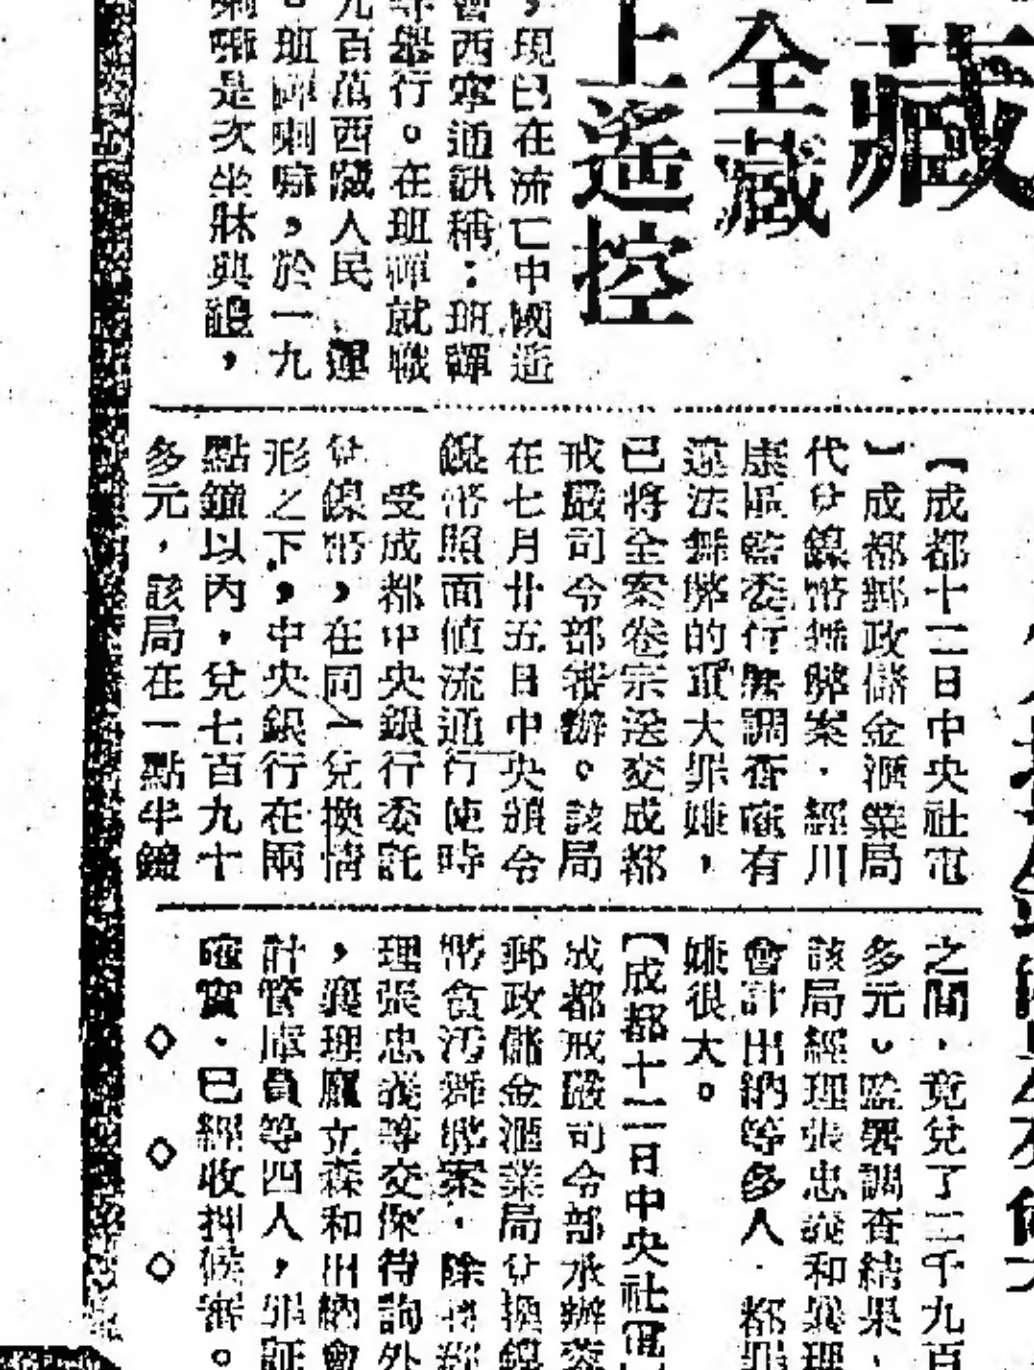 藏
全藏
上遙控
，現已在流亡中國近
會西寧通訊稱：班禪
舉行。在班禪就職
九百萬西藏人民、運
。班禪喇嘛，於一九
喇嘛是次坐牀典禮，
【成都十二日中央社電
】成都郵政儲金滙業局
代兌銀幣舞弊案．經川
康區監委行署調查確有
違法舞弊的重大罪嫌，
已將全案卷宗送交成都
戒嚴司令部審辦。該局
在七月廿五日中央頒令
銀幣照面值流通行使時
受成都中央銀行委託
兌銀幣，在同一兌換情
形之下，中央銀行在兩
點鐘以內，兌七百九十
多元，該局在一點半鐘
之間．竟兌了三千九百
多元。監署調查結果，
該局經理張忠義和襄理
會計出納等多人．都罪
嫌很大。
【成都十二日中央社電
成都戒嚴司令部承辦
郵政儲金滙業局兌換銀
幣貪污舞弊案．除將
理張忠義等交保待詢外
，襄理龐立森和出納會
計管庫員等四人，罪証
確實．已經收押候審。
◇ ◇ ◇